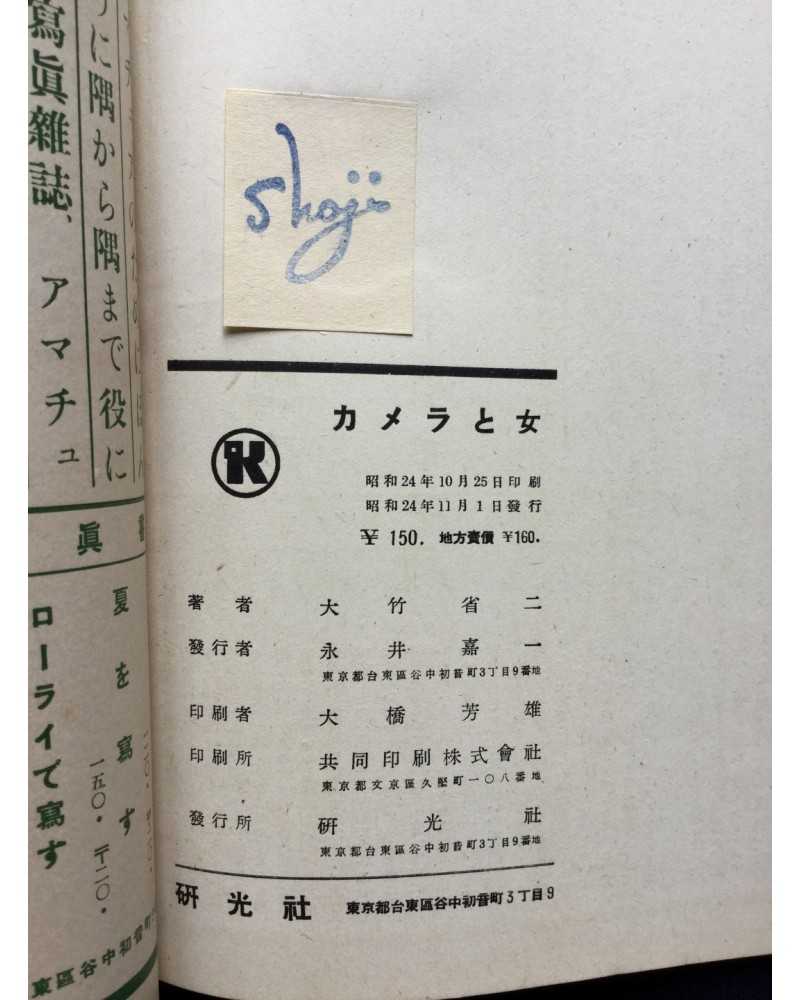 Shoji
カメラと女
昭和24年10月25日印刷
昭和24年11月1日發行
￥150. 地方賣價 ￥160.
著者 大竹省二
發行者 永井嘉一
東京都台東區谷中初音町3丁目9番地
印刷者 大橋芳雄
印刷所 共同印刷株式會社
東京都文京區久堅町一〇八番地
發行所 硏光社
東京都台東區谷中初音町3丁目9番地
硏光社 東京都台東區谷中初音町3丁目9
に隅から隅まで役に
寫眞雜誌、アマチュ
眞
夏を寫す
一五〇・〒二〇・
ローライで寫す
東區谷中初音町